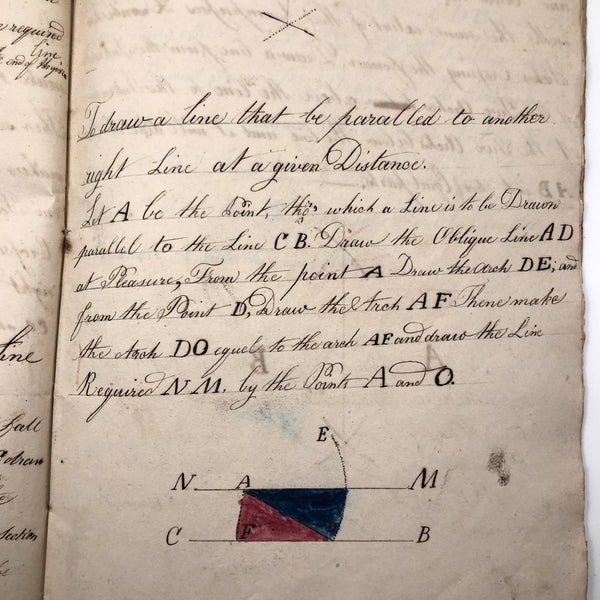 required
line.
end of the
To draw a line that be paralled to another
right Line at a given Distance.
Let A be the Point, tho, which a Line is to be Drawn
parallel to the Line CB. Draw the Oblique Line AD
at Pleasure, From the point A Draw the Arch DE; and
from the Point D, Draw the Arch AF Thene make
the Arch DO equel to the arch AF and draw the Line
Required NM. by the Points A and O.
line
fall
draw
section
be
E
N A M
C F B